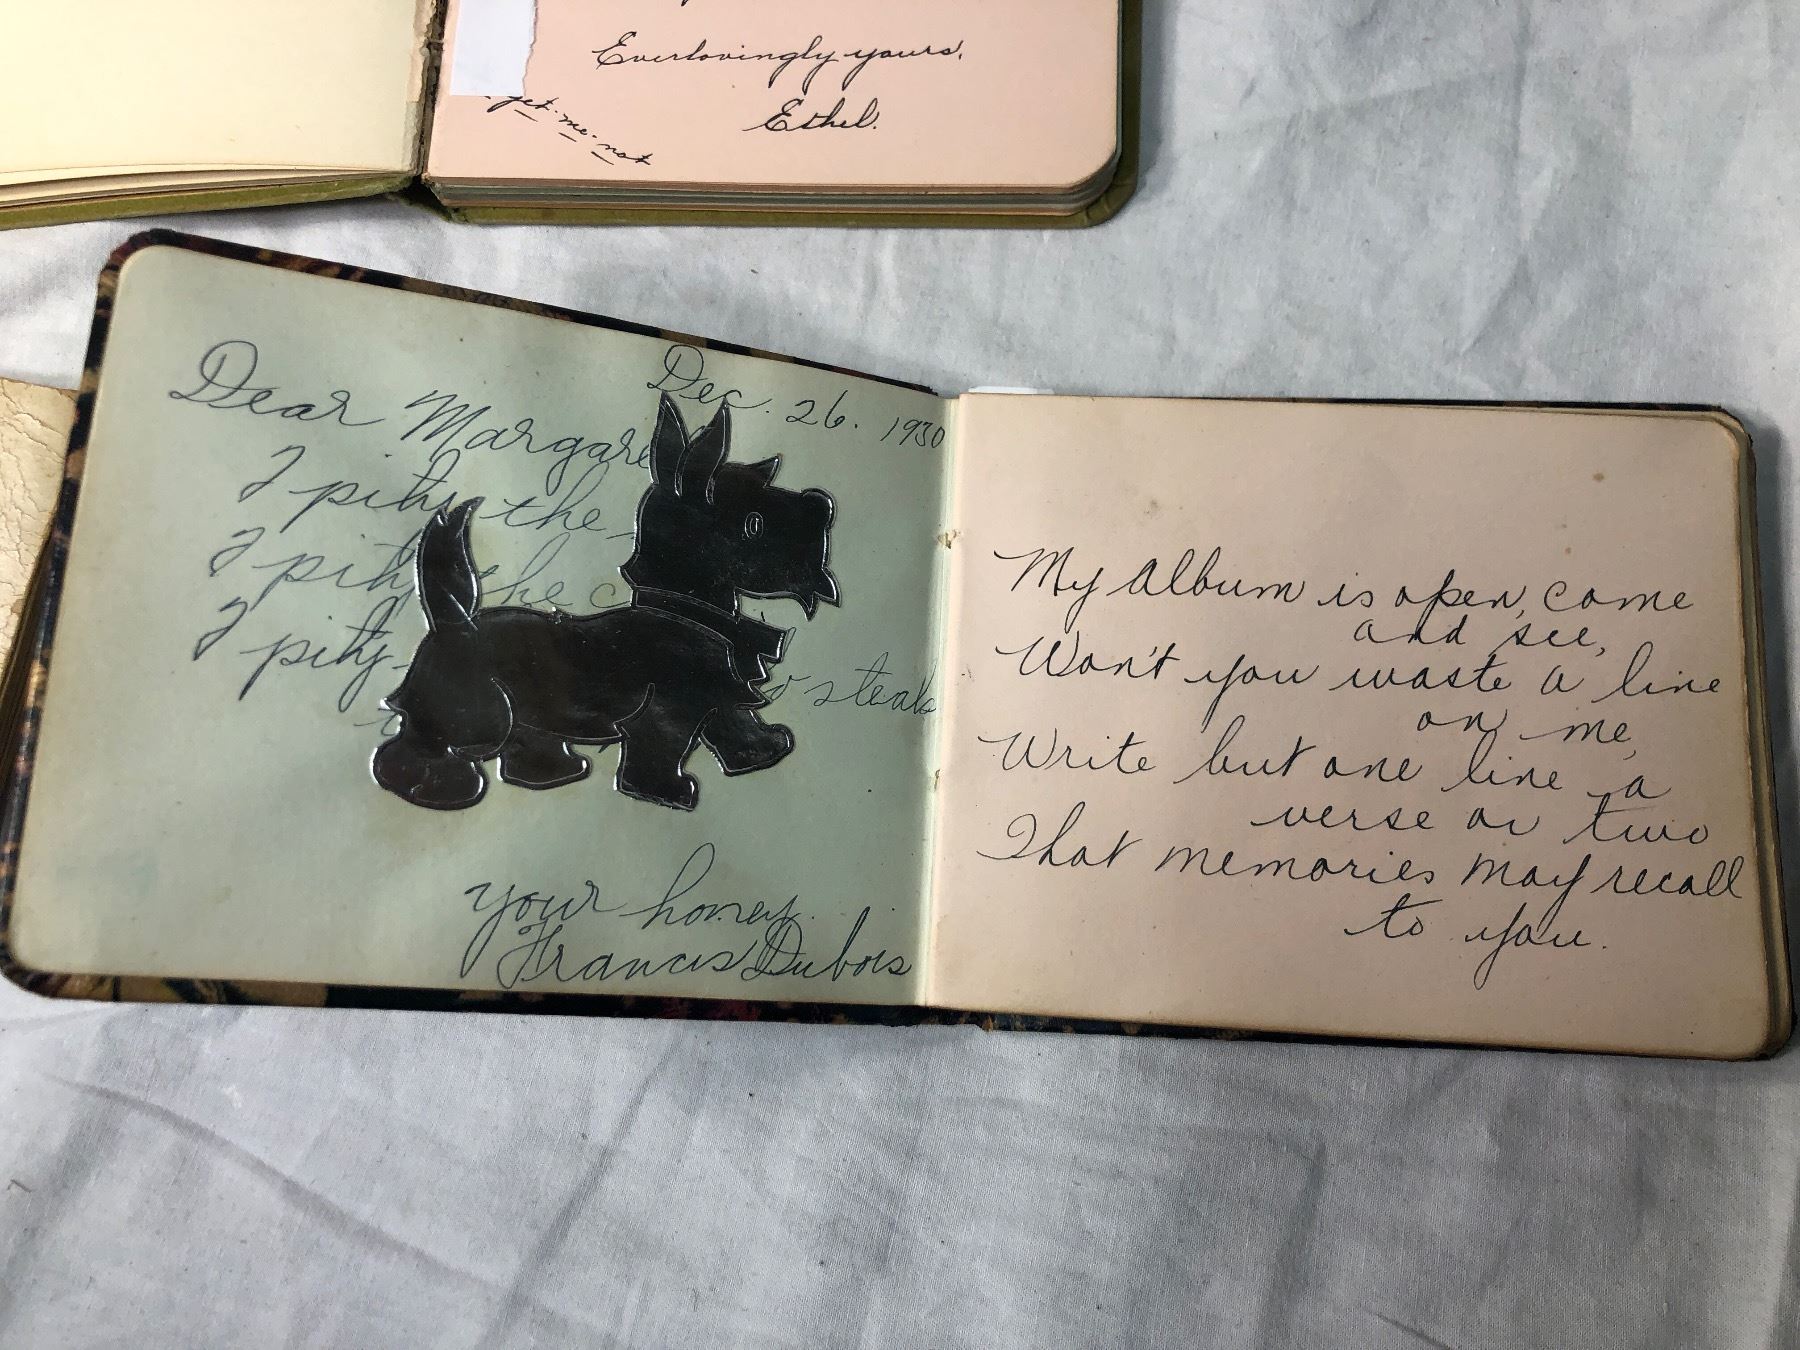 Everlovingly yours.
Ethel.
me-not
Dec. 26. 1930
Dear
I pity the
I pity the
I pity
steals
your honey.
Francis Dubois
My album is open, come
and see,
Won't you waste a line
on me,
Write but one line a
verse or two
That memories may recall
to you.